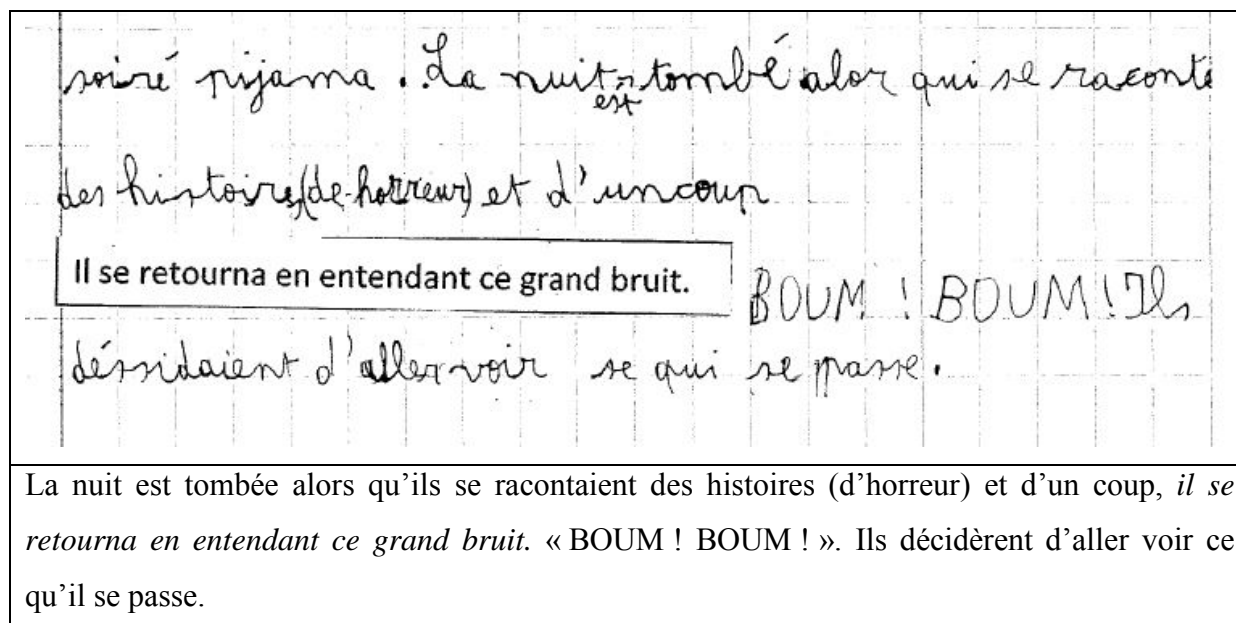 soiré pijama. La nuit est tombé alor qui se raconte
des histoires (de horreur) et d'uncoup
Il se retourna en entendant ce grand bruit. BOUM ! BOUM ! Ils
déssidaient d'aller voir se qui se passe.
La nuit est tombée alors qu'ils se racontaient des histoires (d'horreur) et d'un coup, il se
retourna en entendant ce grand bruit. « BOUM ! BOUM ! ». Ils décidèrent d'aller voir ce
qu'il se passe.